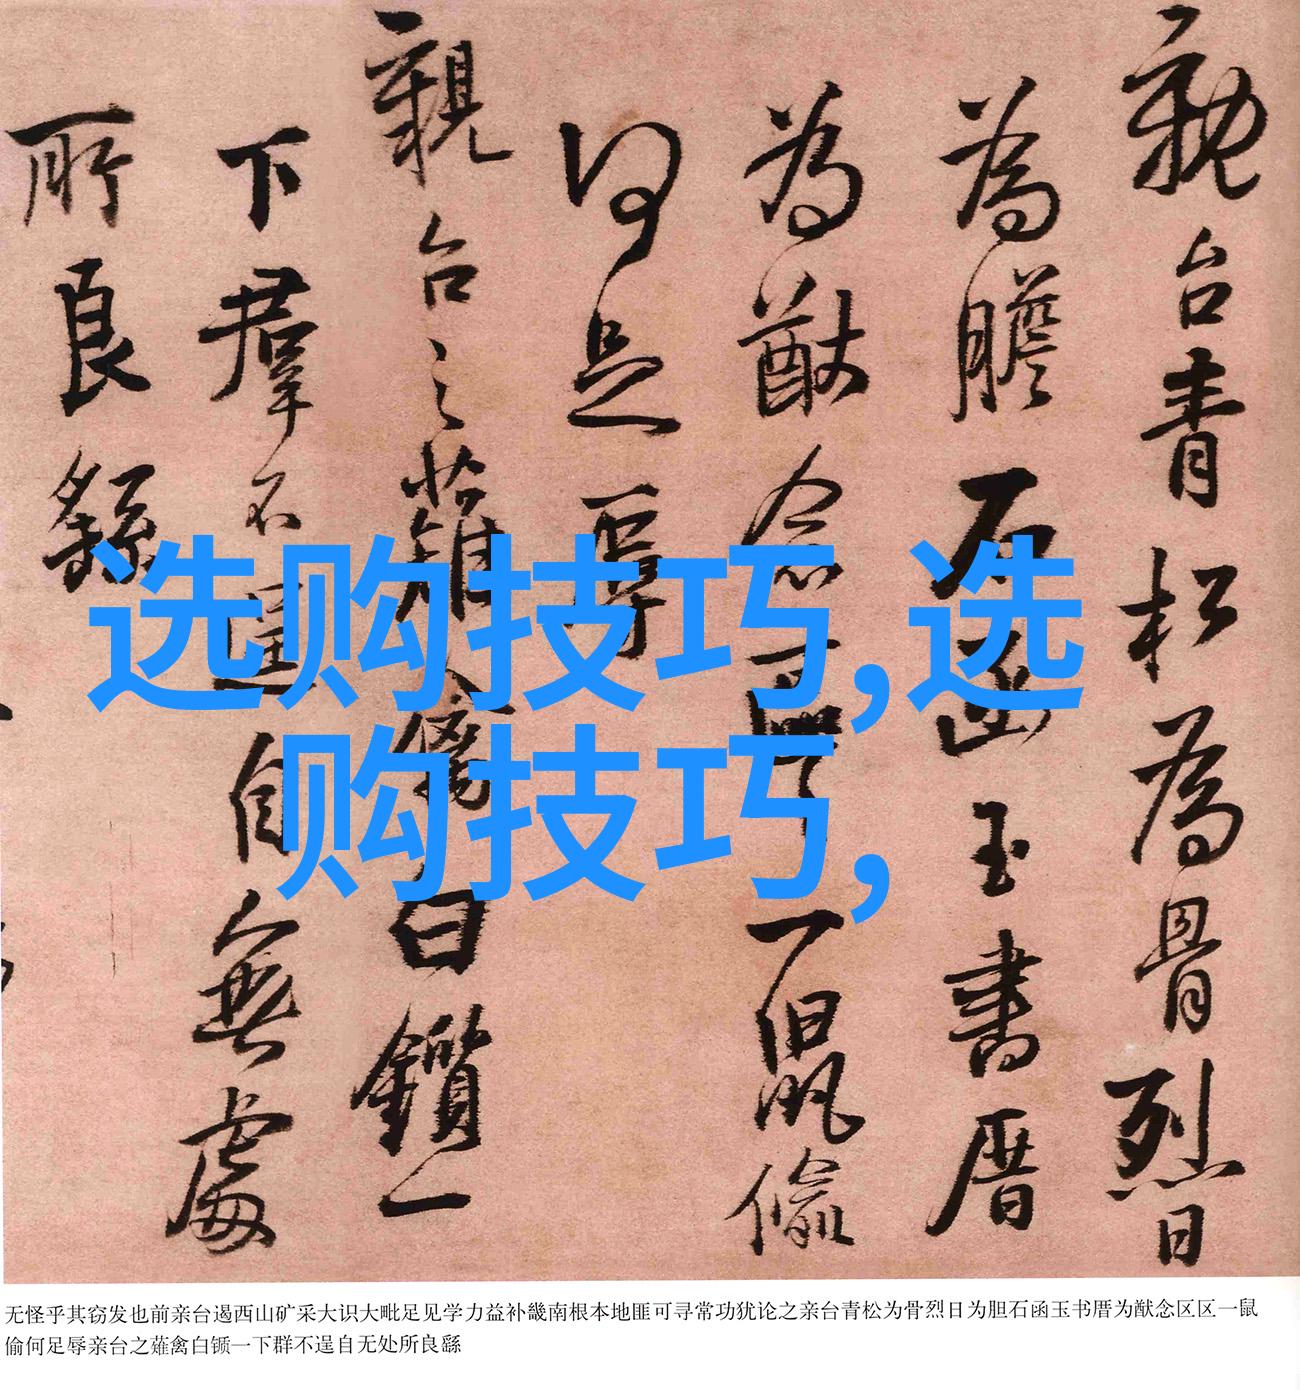 親台青松為骨烈日
為膽石函玉書厝
為猷念區區一鼠偷
何足辱
親台之薙禽白鑕一
下羣不逞自無處
所良繇
选购技巧,选
购技巧,
无怪乎其窃发也前亲台遏西山矿采大识大毗足见学力益补畿南根本地匪可寻常功犹论之亲台青松为骨烈日为胆石函玉书厝为猷念区区一鼠
偷何足辱亲台之薙禽白锧一下群不逞自无处所良繇